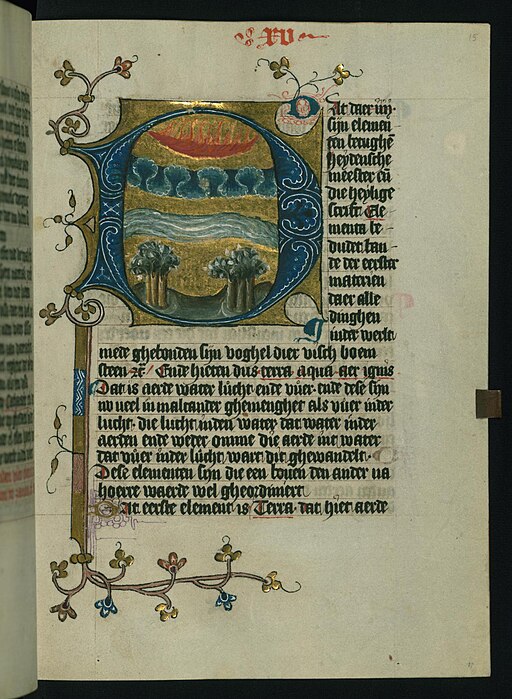 XV
15
Dat daer iiij
sijn elemen
ten teughe
heydensche
meester en
die heylige
scrift Ele
menta be
dudet lan
te der eerster
materien
daer alle
dinghen
in der werlt
mede ghebonden sijn voghel dier visch boem
steen zc Ende hieten dus terra aqua aer ignis
Dat is aerde water lucht ende vuer ende dese sijn
in malcander ghemenghet als vuer inder
lucht die lucht inden water dat water inder
aerden ende weder omme die aerde int water
dat vuer inder lucht wart die ghewandelt
Dese elementen sijn die een bouen den ander na
hoere waerde wel gheordiniert
Dat eerste element is Terra dat hiet aerde